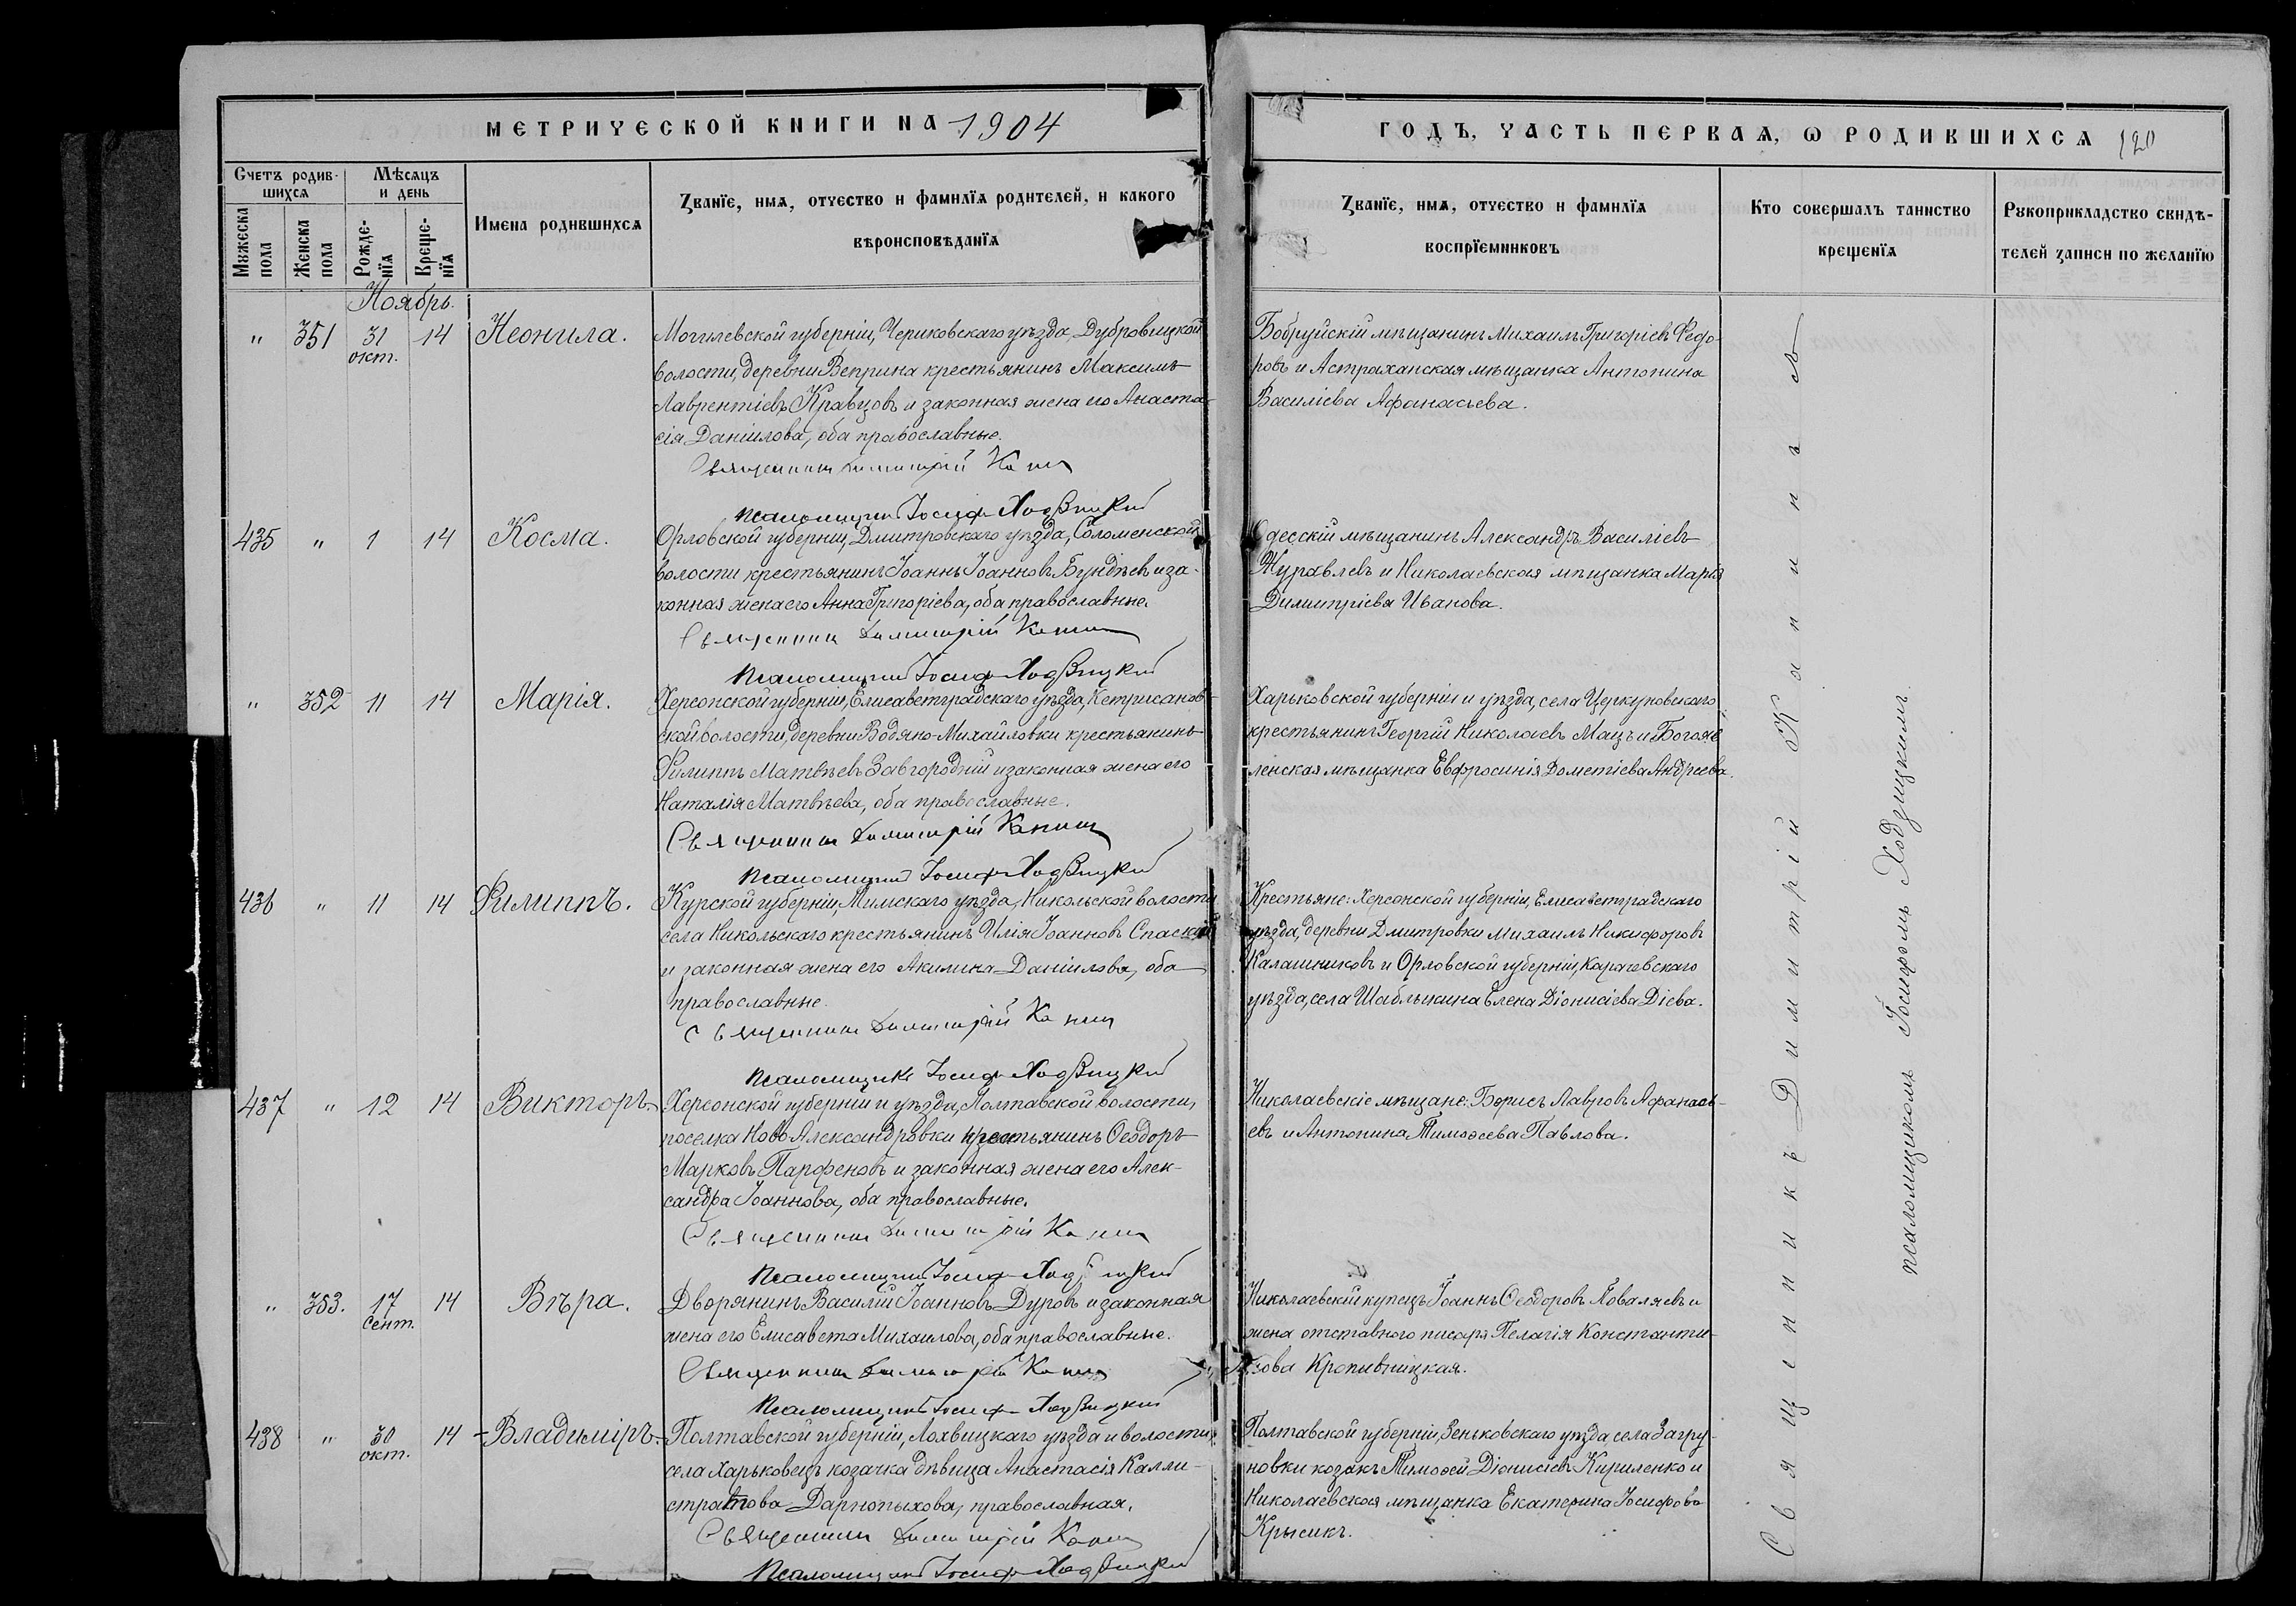 МЕТРИЧЕСКОЙ КНИГИ НА 1904
Счетъ родив-
шихся
Мѣсяцъ
и день
Мужеска
пола
Женска
пола
Рожде-
нїя
Креще-
нїя
Имена родившихся
Званїе, имя, отчество и фамилїя родителей, и какого
вѣроисповѣданїя
Ноябрь.
" 351 31 14 Неонила.
окт.
Могилевской губерніи, Чериковскаго уѣзда, Дубровицкой
волости, деревни Веприна крестьянинъ Максимъ
Лаврентіевъ Кравцовъ и законная жена его Анаста-
сія Даніилова, оба православные.
Священникъ Димитрій
Псаломщикъ Іосифъ Ходзицкий
435 " 1 14 Косма.
Орловской губерніи, Дмитровскаго уѣзда, Соломенской
волости крестьянинъ Іоаннъ Іоанновъ Бундѣевъ и за-
конная жена его Анна Григоріева, оба православные.
Священникъ Димитрій
Псаломщикъ Іосифъ Ходзицкий
" 352 11 14 Марія.
Херсонской губерніи, Елисаветградскаго уѣзда, Кетрисанов-
ской волости, деревни Водяно-Михайловки крестьянинъ
Филиппъ Матвѣевъ Завгородній и законная жена его
Наталія Матвѣева, оба православные.
Священникъ Димитрій
Псаломщикъ Іосифъ Ходзицкий
436 " 11 14 Филиппъ.
Курской губерніи, Тимскаго уѣзда, Никольской волости
села Никольскаго крестьянинъ Илія Іоанновъ
и законная жена его Акилина Даніилова, оба
православные.
Священникъ Димитрій
Псаломщикъ Іосифъ Ходзицкий
437 " 12 14 Викторъ.
Херсонской губерніи и уѣзда, Полтавской волости,
поселка Ново Александровки крестьянинъ Ѳеодоръ
Марковъ Парфеновъ и законная жена его Алек-
сандра Іоаннова, оба православные.
Священникъ Димитрій
Псаломщикъ Іосифъ Ходзицкий
" 353. 17 14 Вѣра.
Сент.
Дворянинъ Василій Іоанновъ Дуровъ и законная
жена его Елисавета Михаилова, оба православные.
Священникъ Димитрій
Псаломщикъ Іосифъ Ходзицкий
438 " 30 14 Владиміръ.
окт.
Полтавской губерніи, Лохвицкаго уѣзда и волости,
села Харьковецъ козачка дѣвица Анастасія Калли-
стратова, православная.
Священникъ Димитрій
Псаломщикъ Іосифъ Ходзицкий
ГОДЪ, ЧАСТЬ ПЕРВАЯ, Ѡ РОДИВШИХСЯ 120
Званїе, имя, отчество и фамилїя
воспрїемниковъ
Кто совершалъ таинство
крещенїя
Рукоприкладство свидѣ-
телей записи по желанїю
Бобруйскій мѣщанинъ Михаилъ Григоріевъ Федо-
ровъ и Астраханская мѣщанка Антонина
Василіева Афанасьева.
Одесскій мѣщанинъ Александръ Василіевъ
Журавлевъ и Николаевская мѣщанка Марія
Димитріева Иванова.
Харьковской губерніи и уѣзда, села Церкуновскаго
крестьянинъ Георгій Николаевъ Мацъ и Богояв-
ленская мѣщанка Евфросинія Дометіева Андреева.
Крестьяне: Херсонской губерніи, Елисаветградскаго
уѣзда, деревни Дмитровки Михаилъ Никифоровъ
Калашниковъ и Орловской губерніи, Карачевскаго
уѣзда, села Шаблыкина Елена Діонисіева Діева.
Николаевскіе мѣщане: Борисъ Лавровъ Афанась-
евъ и Антонина Тимоѳеева Павлова.
Николаевскій купецъ Іоаннъ Ѳеодоровъ Коваляевъ и
жена отставного писаря Пелагія Константи-
нова Кропивницкая.
Полтавской губерніи, Зеньковскаго уѣзда села Загру-
новки козакъ Тимоѳей Діонисіевъ Кириленко и
Николаевская мѣщанка Екатерина Іосифова
Крысикъ.
Священникъ Димитрій
псаломщикомъ Іосифомъ Ходзицкимъ.